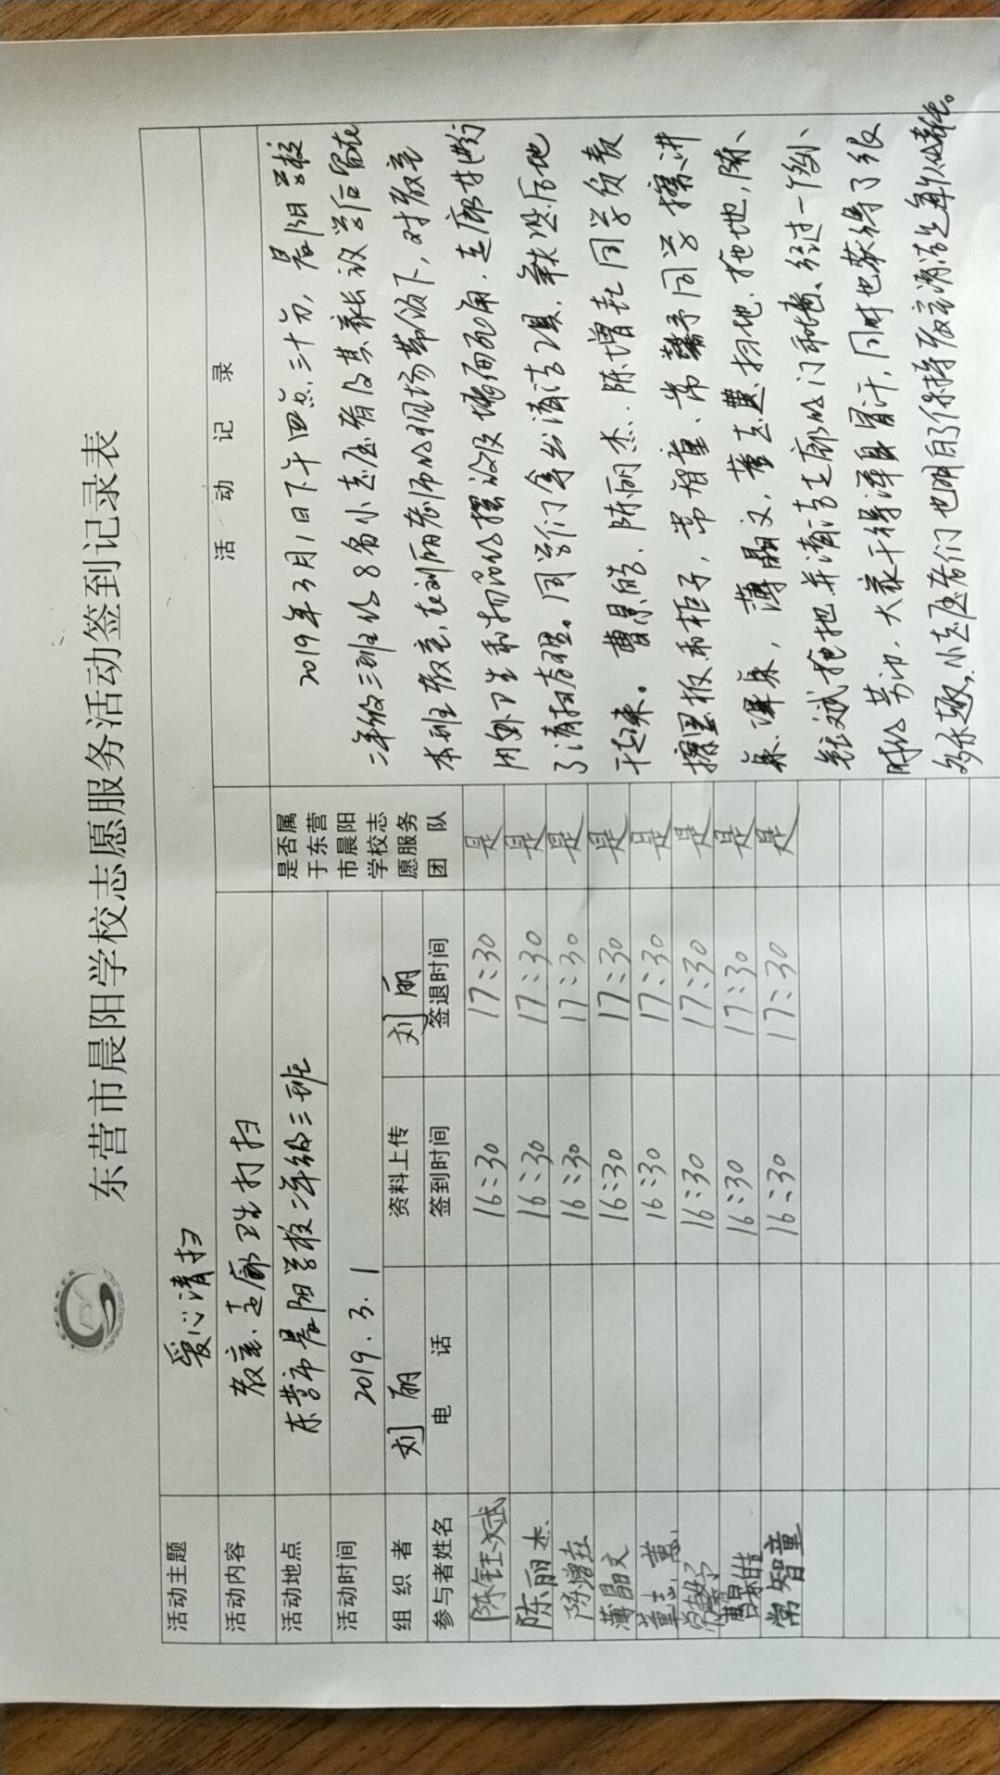 东营市晨阳学校志愿服务活动签到记录表
活动主题 爱心清扫
活动内容 教室、走廊卫生打扫
活动地点 东营市晨阳学校二年级三班
活动时间 2019.3.1
组织者 刘丽 资料上传 刘丽
是否属于东营市晨阳学校志愿服务团队
参与者姓名 电话 签到时间 签退时间
陈钰文斌 16:30 17:30 是
陈丽杰 16:30 17:30 是
陈增喆 16:30 17:30 是
薄晶文 16:30 17:30 是
董志惠 16:30 17:30 是
常馨予 16:30 17:30 是
曹景皓 16:30 17:30 是
常智童 16:30 17:30 是
活动记录
2019年3月1日下午四点三十分，晨阳学校
二年级三班的8名小志愿者及其家长放学后留在
本班教室，在刘丽老师的现场带领下，对教室
内外卫生和物品的摆设及墙面死角、走廊进行
了清扫与整理。同学们拿出清洁工具，热火朝天地
干起来。曹景皓、陈丽杰、陈增喆同学负责
擦黑板和柜子，常智童、常馨予同学擦讲
桌、课桌，薄晶文，董志惠扫地、拖地，陈
钰文斌拖把并清洁走廊的门和墙、经过一个小
时的劳动，大家干得浑身冒汗，同时也获得了很
多乐趣，小志愿者们也明白了保持教室清洁